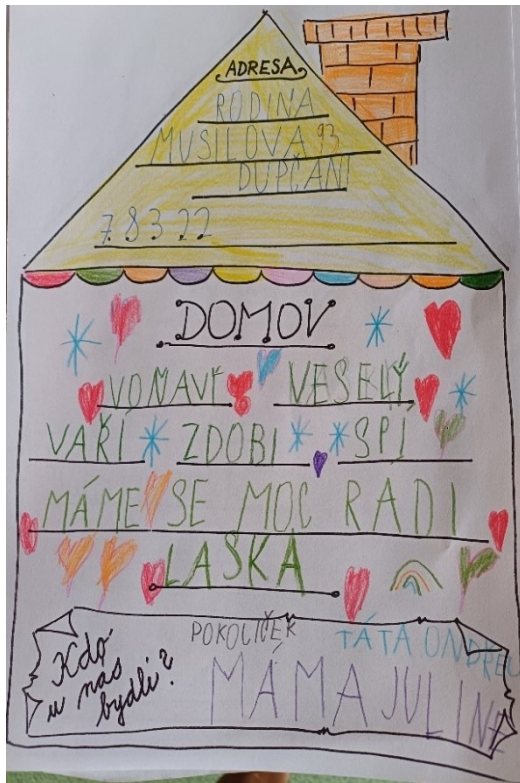 ADRESA
RODINA
MUSILOVA 93
DUPČANI
7.8.3.22
DOMOV
VOŇAVÝ VESELÝ
VAŘÍ ZDOBI SPÍ
MÁME SE MOC RADI
LASKA
Kdo u nás bydlí?
TÁTA ONDREJ
MÁMA JULINE